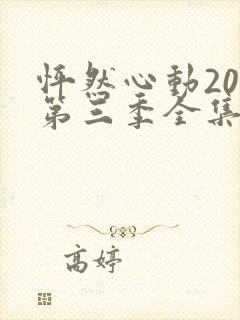 怦然心動20
第三季全集
高婷